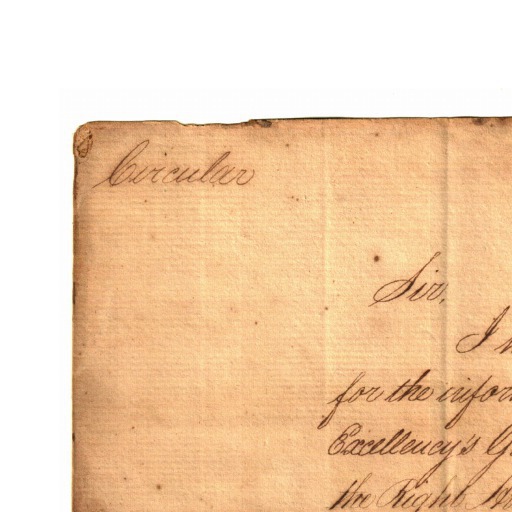 Circular
Sir,
I
for the
Excellency's
the Right